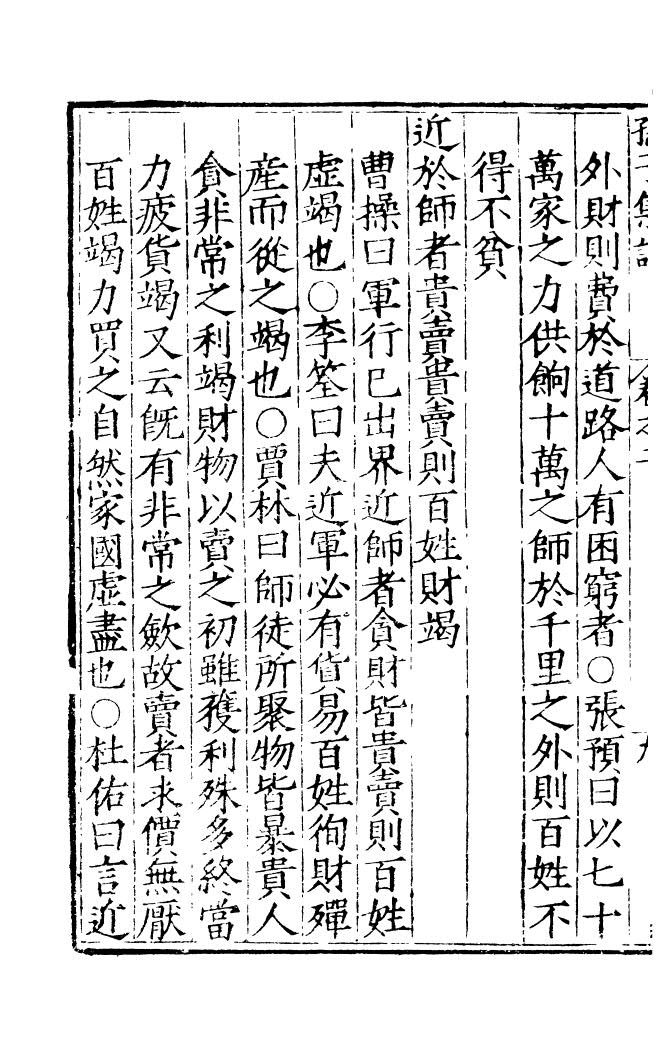 外財則費於道路人有困窮者○張預曰以七十
萬家之力供餉十萬之師於千里之外則百姓不
得不貧
近於師者貴賣貴賣則百姓財竭
曹操曰軍行已出界近師者貪財皆貴賣則百姓
虛竭也○李筌曰夫近軍必有貨易百姓徇財殫
產而從之竭也○賈林曰師徒所聚物皆暴貴人
貪非常之利竭財物以賣之初雖獲利殊多終當
力疲貨竭又云旣有非常之斂故賣者求價無厭
百姓竭力買之自然家國虛盡也○杜佑曰言近